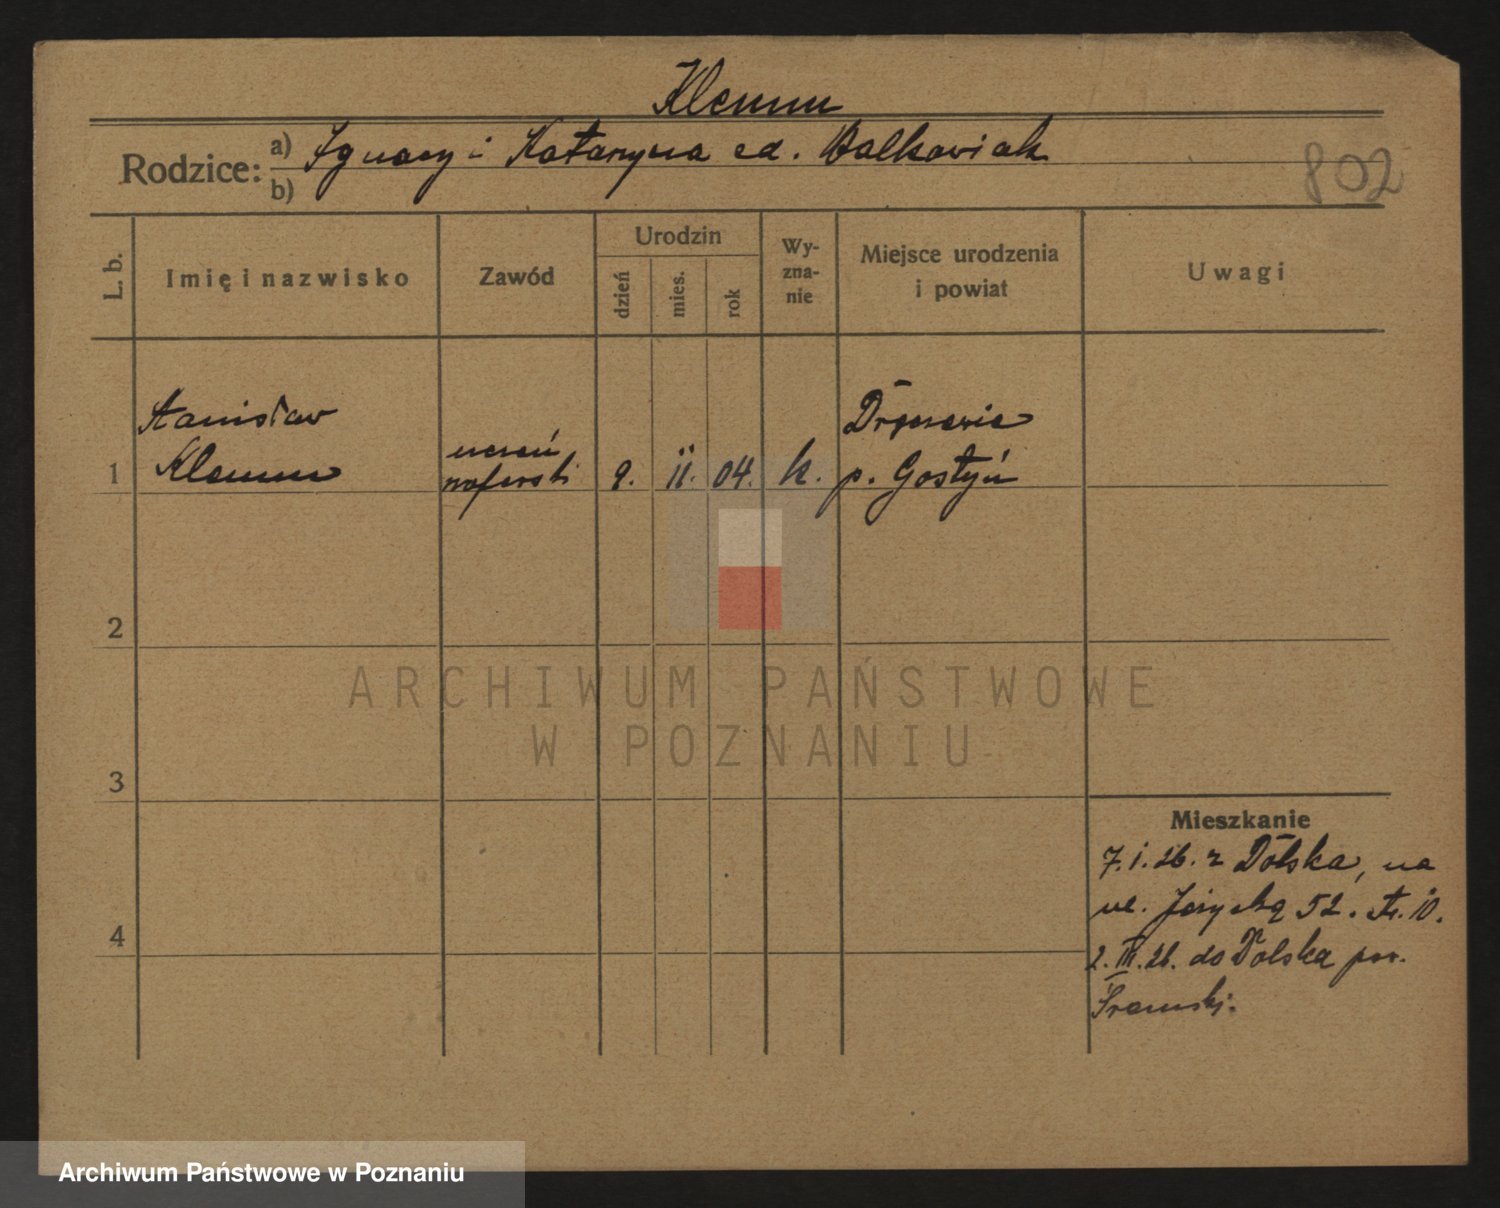 Klemm
Rodzice: a) Ignacy i Katarzyna ed. Walkowiak
b)
802
L. b.
Imię i nazwisko
Zawód
Urodzin
dzień
mies.
rok
Wy-
zna-
nie
Miejsce urodzenia
i powiat
Uwagi
Stanisław
Klemm
uczeń
1
9. II. 04. k.
p. Gostyń
2
3
4
Mieszkanie
7. I. 26. z Dolska, na
ul. 52. 10.
2. III. 26. do Dolska pow.
Śremski.
ARCHIWUM PAŃSTWOWE
W POZNANIU
Archiwum Państwowe w Poznaniu